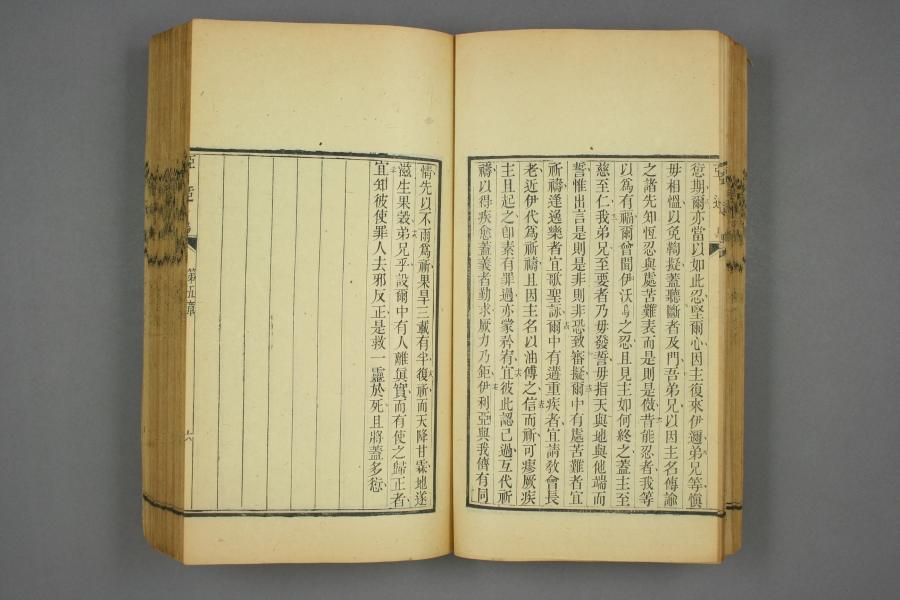 愆期爾亦當以如此忍堅爾心因主復來伊邇弟兄等愼
毋相慍以免鞫擬蓋聽斷者及門吾弟兄以因主名傳諭
之諸先知恆忍與處苦難表而是則是傚昔能忍者我等
以爲有福爾曾聞伊沃烏之忍且見主如何終之蓋主至
慈至仁我弟兄至要者乃毋發誓毋指天與地與他端而
誓惟出言是則是非則非恐致審擬爾中有處苦難者宜
祈禱逢適樂者宜歌聖詠爾中有遘重疾者宜請敎會長
老近伊代爲祈禱且因主名以油傅之信而祈可瘳厥疾
主且起之卽素有罪過亦蒙矜宥宜彼此認己過互代祈
禱以得疾愈蓋義者勤求厥力乃鉅伊利亞與我儕有同
情先以不雨爲祈果旱三載有半復祈而天降甘霖地遂
滋生果穀弟兄乎設爾中有人離眞實而有使之歸正者
宜知彼使罪人去邪反正是救一靈於死且將蓋多愆
第五章
六